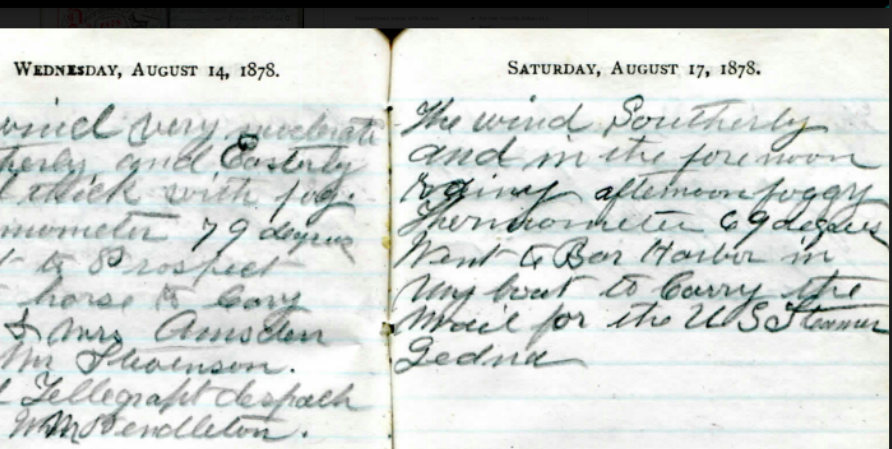 WEDNESDAY, AUGUST 14, 1878.
wind very moderate
therly and Easterly
thick with fog.
mometer 79 degrees
to Prospect
horse to Cary
& Mrs Amsden
Mr Stevenson.
Tellegrapt despach
Wm Pendleton.
SATURDAY, AUGUST 17, 1878.
The wind Southerly
and in the forenoon
rainy afternoon foggy
Thermometer 69 degrees
Went to Bar Harbor in
my boat to Carry the
mail for the U S Steamer